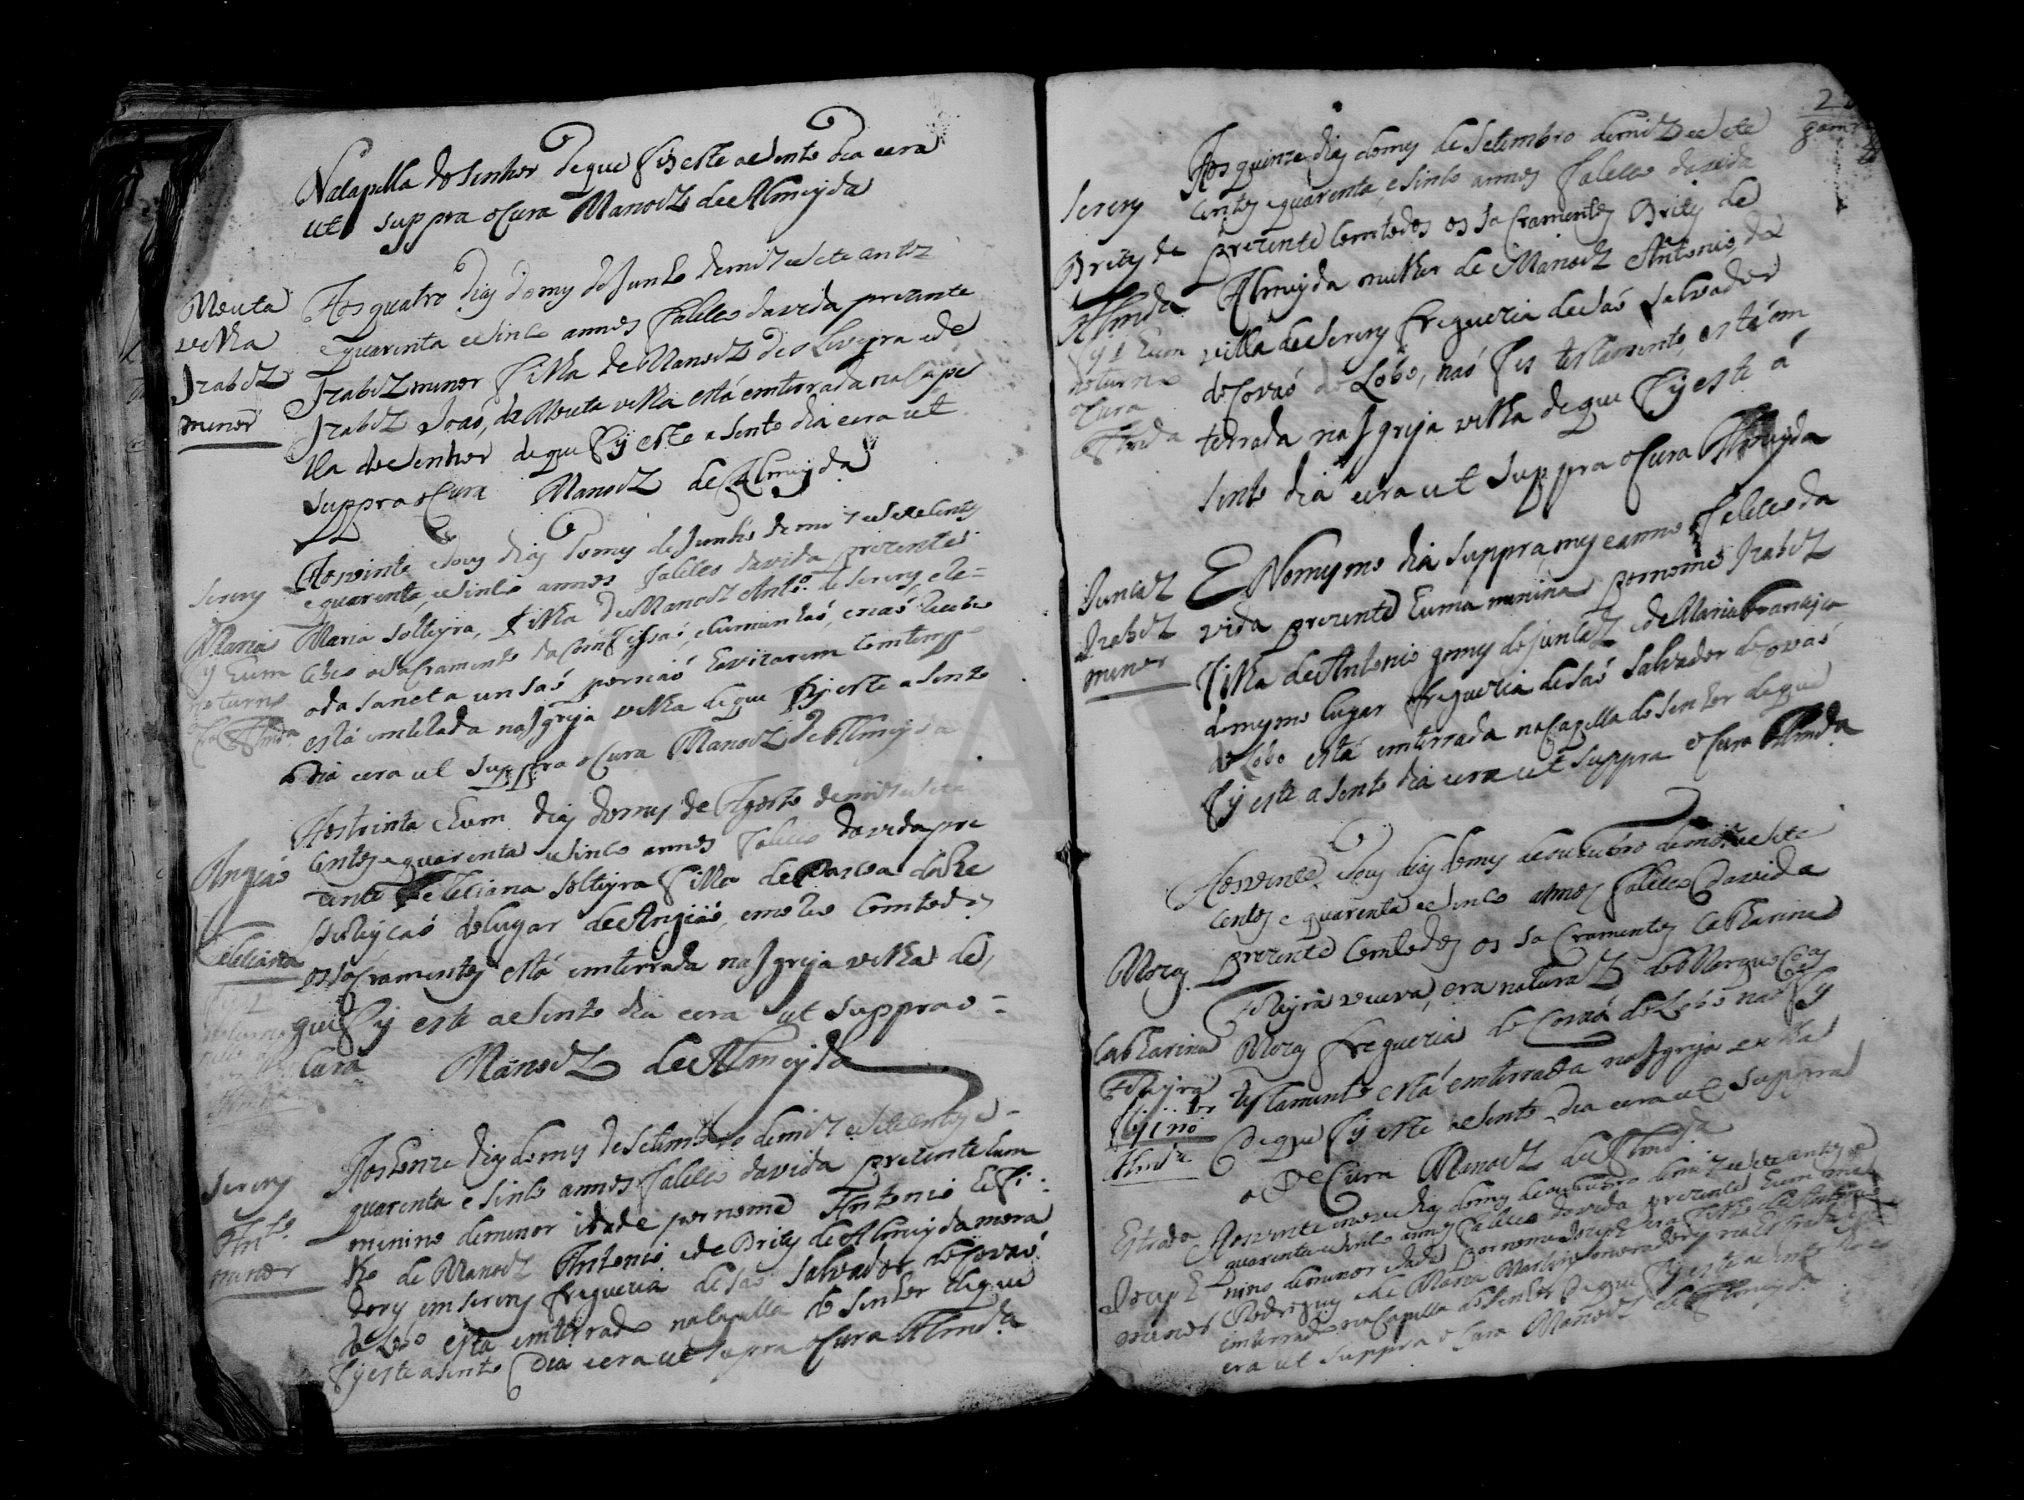 Nacapella do Senher deque fis este acento dia e era
ut suppra o Cura Manoel de Almeyda
Mouta
velha
Izabel
menor
Aos quatro dias do mes de Junho de mil e sete centos
e quarenta e sinco annos faleceo da vida prezente
Izabel menor filha de Manoel de oliveyra e de
Izabel Joaõ, da Mouta velha está emterrada na Cape
lla do Senher de que fis este asento dia e era ut
suppra o Cura Manoel de Almeyda
Serem
Maria
fis hum
noturno
Almda
Aos vinte e dous dias do mes de Junho de mil e sete centos
e quarenta e sinco annos faleceo da vida prezente
Maria solteyra, filha de Manoel Anto. de Serem, e re=
cebeo o sacramento da comfissaõ, e naõ recebeo
o da sancta unsaõ por naõ havizarem com tempo
está emterada na Igreja velha de que fis este asento
dia e era ut suppra o Cura Manoel de Almeyda
Angiaõ
Feleciana
noturno
Almda
Aos trinta e hum dias do mes de Agosto de mil e sete
centos e quarenta e sinco annos faleceo da vida pre
zente Feleciana solteyra filha de Pascoa
do lugar de Angiaõ, e morreo com todos
os sacramentos está emterrada na Igreja velha de
que fis este asento dia e era ut suppra o =
Cura Manoel de Almeyda
Serem
Anto.
menor
Aos honze dias do mes de Setembro de mil e sete centos e =
quarenta e sinco annos faleceo da vida prezente hum
menino de menor idade por nome Antonio he fi=
lho de Manoel Antonio e de Brites de Almeyda mora
dores em Serem freguezia de saõ Salvador de Covaõ
do Lobo está emterrado na Capella do Senher de que
fis este asento dia e era ut supra o Cura Almda
Serem
Brites de
Almda
fis hum
noturno
o Cura
Almda
Aos quinze dias do mes de Setembro de mil e sete
centos e quarenta e sinco annos faleceo da vida
prezente com todos os sacramentos Brites de
Almeyda mulher de Manoel Antonio da
villa de Serem freguezia de saõ Salvador
de Covaõ do Lobo, naõ fes testamento, está em
terrada na Igreja velha de que fis este a
sento dia e era ut suppra o Cura Almeyda
Juncal
Izabel
menor
E No mesmo dia suppra, mes e anno faleceo da
vida prezente huma menina por nome Izabel
filha de Antonio gomes do juncal e de Maria francisca
do mesmo lugar freguezia de saõ Salvador de Covaõ
do Lobo está emterrada na Capella do Senher de que
fis este asento dia e era ut suppra o Cura Almda
Mozes
Catharina
Almda
Aos vinte e dous dias do mes de outubro de mil e sete
centos e quarenta e sinco annos faleceo da vida
prezente com todos os sacramentos Catharina
viuva, era natural
freguezia de Covaõ do Lobo naõ fes
testamento está emterrada na Igreja velha
de que fis este asento dia e era ut suppra
o Pe Cura Manoel de Almda
Estrada
Joseph
menor
Aos vinte e nove dias do mes de outubro de mil e sete centos e
quarenta e sinco annos faleceo da vida prezente hum me
nino de menor idade por nome Joseph era filho de Antonio
Rodrigues e de Maria Martins moradores na Estrada está
emterrado na Capella do Senher de que fis este asento dia e
era ut suppra o Cura Manoel de Almeyda